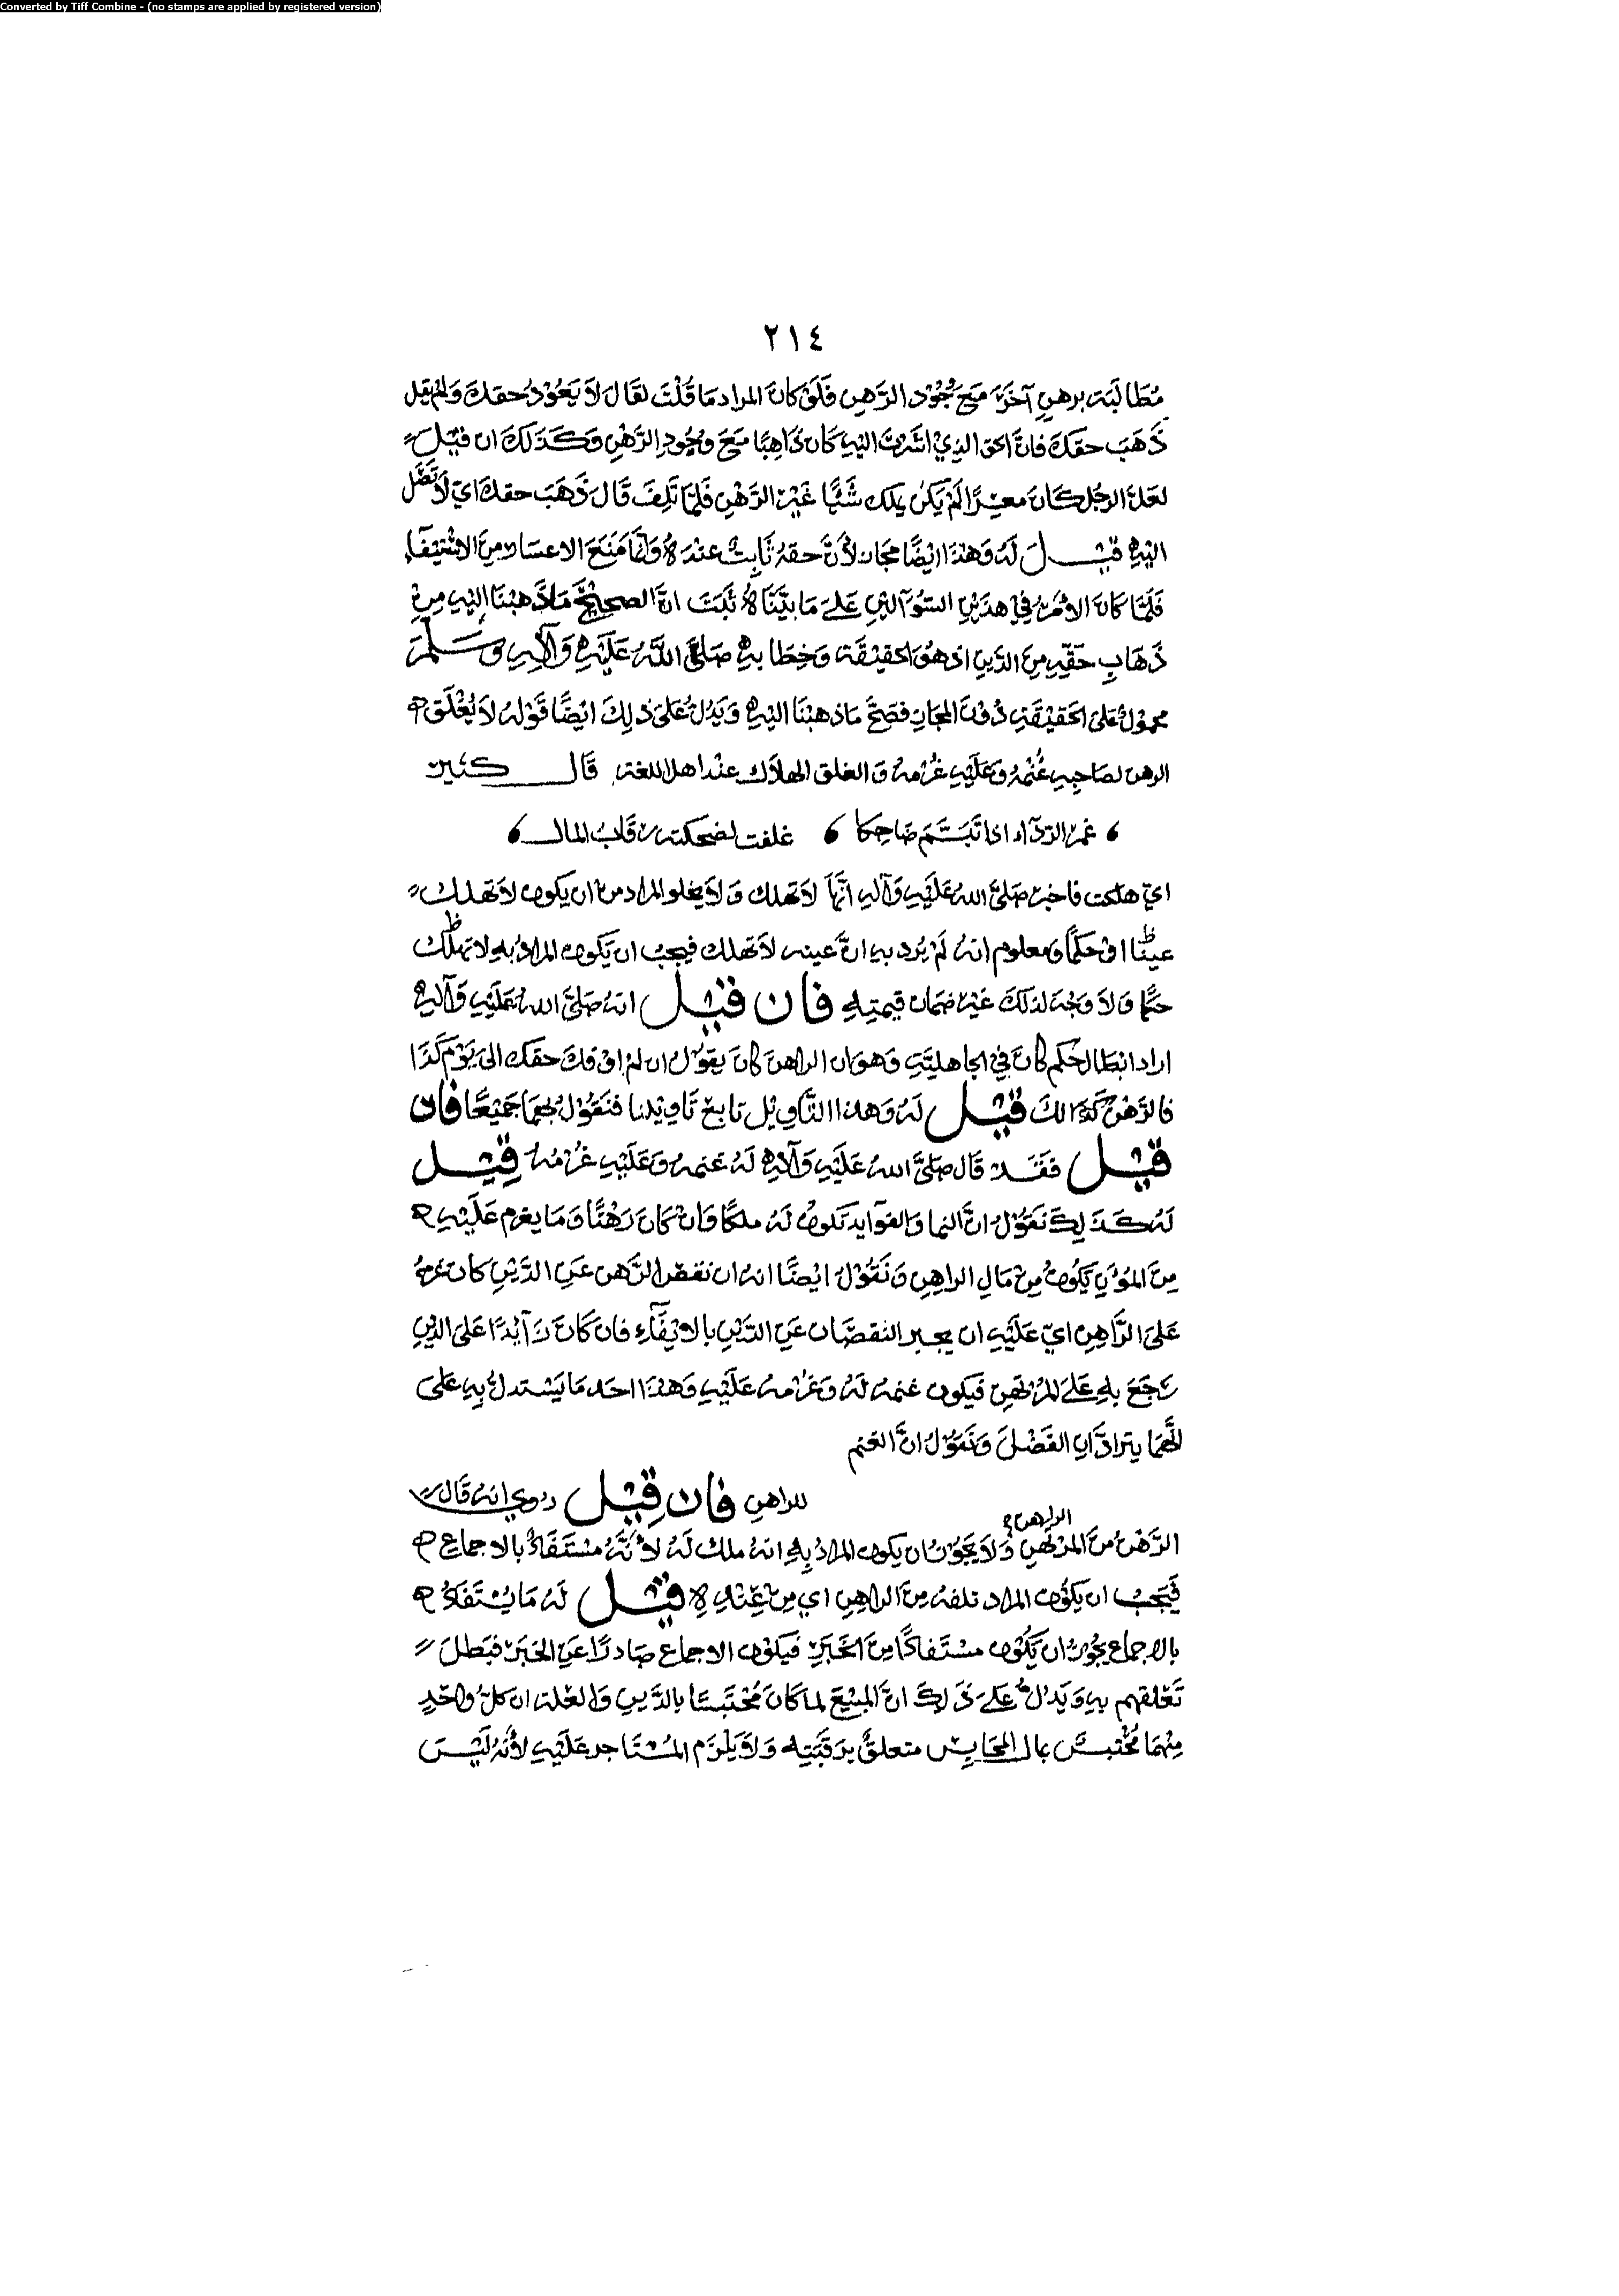 Converted by Tiff Combine - (no stamps are applied by registered version)
٢١٤
مُطَالَبَته برهنٍ آخَرَ مَعَ وُجُوْد الرَّهنِ فَلَوْ كانَ المراد مَا قُلْتَ لقَالَ لاَ يَعُوْدُ حقكَ وَلمْ يقل
ذَهَبَ حقكَ فانَّ الحق الذِيْ اشَرْتَ اليْهِ كَانَ ذَاهِبًا مَعَ وُجُودِ الرَّهْنِ وَكَذَلكَ ان قيْلَ
لعَلَّ الرجُل كَانَ معسِرًا لَمْ يَكنْ يملك شَيْئًا غَيْرَ الرَّهْنِ فَلَمَّا تَلِفَ قَالَ ذَهَبَ حقكَ ايْ لاَ تَصِل
اليْهِ قيْلَ لَهُ وَهَذَا ايْضًا مجَاز لأنَّ حقهُ ثَابِتٌ عندَهُ وَانَّمَا مَنَعَ الاعسَار مِنَ الاسْتيْفَاءِ
فَلَمَّا كانَ الاَمْرُ فيْ هذَيْنِ السّوَآلينِ عَلَى مَا بيَّنَّاهُ ثَبَتَ انَّ الصحِيْحَ مَا ذَهبْنَا اليْهِ مِنْ
ذَهَابِ حَقِّهِ مِنَ الدَّينِ اذ هُوَ الحَقيْقَة وَخِطَابهِ صَلَّى اللَّهُ عَلَيْهِ وَآلِهِ وَسَلَّمَ
محموْلٌ عَلَى الحَقيْقَةِ دُوْنَ المجَازِ فَصَحَّ مَا ذهبْنَا اليْهِ وَيَدُلُّ عَلَى ذلِكَ ايْضًا قَوْلهُ لاَ يُغْلَق
الرهن لصَاحِبِهِ غُنْمُهُ وَعَلَيْهِ غُرْمهُ وَالغلق الهلاَك عنْد اهل اللغة قَال كثير
غمر الردَآء اذا تَبَسَّمَ ضَاحِكا غلقت لضحكته رقَابُ المال
ايْ هلكت فاخبرَ صَلَّى اللهُ عَلَيْهِ وَآلِهِ انَّهَا لاَ تَهلك وَلاَ يخلو المراد من ان يكونَ لاَ تهلك
عينًا اوْ حكمًا ومعلوم انهُ لَمْ يُرد بهِ انَّ عينه لاَ تهلك فيجبُ ان يَكونَ المرادُ بهِ لا تهلك
حكمًا وَلاَ وَجْهَ لذلكَ غَيْر ضمان قيمتِهِ فان قيْل انهُ صَلَّى اللهُ عَلَيْهِ وَآلِهِ
اراد ابْطَال حُكم كانَ فيْ الجاهليَّةِ وَهو ان الراهنَ كانَ يقوْلُ ان لم اوْفكَ حقكَ الى يَوْم كَذَا
فالرَّهْنُ كَذَالكَ قيْل لَهُ وَهذا التَّاوِيْل تابعٌ تَاوِيْلنا فنَقُوْلُ بهمَا جَمِيْعًا فان
قيْل فَقَدْ قَال صَلَّى اللهُ عَلَيْهِ وَآلِهِ لَهُ غنمهُ وَعَلَيْهِ غُرْمهُ قِيْل
لَهُ كَذَلِكَ نَقُوْلُ انَّ النما وَالفوَآيد تكونُ لَهُ ملكًا وَانْ كَانَ رَهْنًا وَمَا يغرم عَلَيْهِ
مِنَ المُوَنِ يَكُونُ مِنْ مَالِ الراهِنِ وَنَقُوْلُ ايْضًا انهُ ان نقصَ الرَّهنُ عَنِ الدَّيْنِ كان غرمهُ
عَلَى الرَّاهِنِ ايْ عَلَيْهِ ان يجبر النقصَان عَنِ الدَّيْنِ بالاِيْفَآءِ فان كَانَ زَآيْدًا عَلَى الدَّيْنِ
رَجَعَ بهِ عَلَى المُرْتَهِنِ فيكون غنمهُ لَهُ وَغرْمهُ عَلَيْهِ وَهَذَا احد مَا يَسْتدلُّ بهِ عَلَى
انَّهمَا يترادَّانِ الفَضْلَ وَنَقُوْلُ انَّ الغنم
للراهنِ فان قِيْل رُوِيَ انهُ قَال
الراهن
الرَّهْنُ مِنَ المُرْتهِنِ وَلاَ يَجُوْزُ ان يكونَ المرادُ بِهِ انهُ ملك لَهُ لأَنَّهُ مسْتَفَادٌ بالاجماعِ
فَيَجبُ ان يكوْنَ المراد تلفه مِنَ الراهنِ اي مِنْ عِنْدِهِ قيْل لَهُ مَا يُسْتَفَادُ
بالاجماع يجُوْزُ ان يَكُوْنَ مسْتَفَادًا مِنَ الخَبَرِ فيكونَ الاجماع صَادرًا عَنِ الخبَرِ فبَطلَ
تَعَلقهم بهِ وَيَدُلُّ عَلَى ذَلِكَ انَّ المَبيْعَ لما كَانَ مُحْتَبسًا بالدَّيْنِ وَالعلة ان كلَّ واحِدٍ
مِنْهمَا مُحْتبسٌ بال الحَابِس متعلقٌ برَقبَتِهِ وَلاَ يلزَم المُسْتَاجر عَلَيْهِ لأَنهُ لَيْسَ